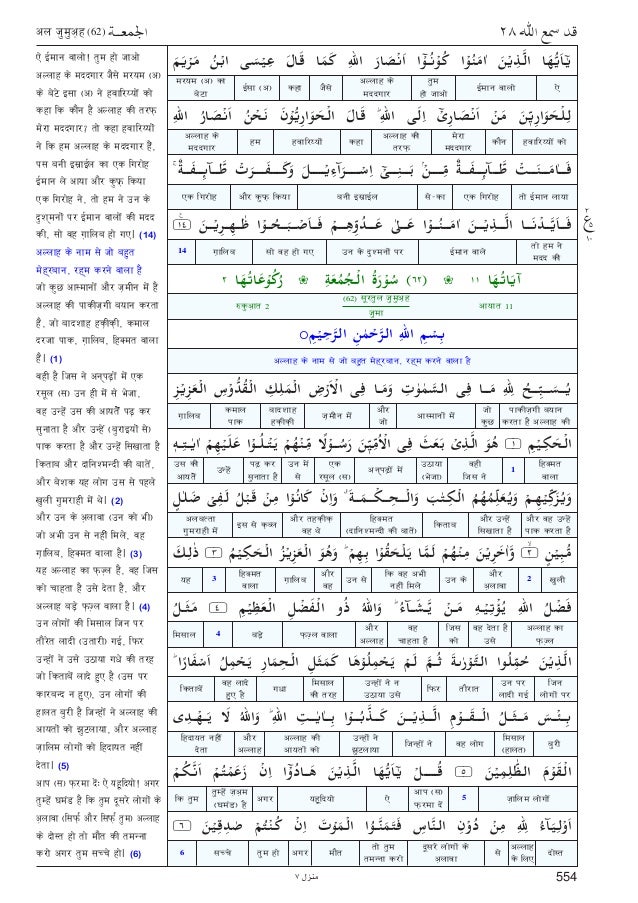 अल जुमुअ़ह (62) الجمعـة
قد سمع الله ٢٨
ऐ ईमान वालो! तुम हो जाओ
अल्लाह के मददगार जैसे मरयम (अ)
के बेटे इसा (अ) ने हवारिय्यों को
कहा कि कौन है अल्लाह की तरफ़
मेरा मददगार? तो कहा हवारिय्यों
ने कि हम अल्लाह के मददगार हैं,
पस बनी इस्राईल का एक गिरोह
ईमान ले आया और कुफ़्र किया
एक गिरोह ने, तो हम ने उन के
दुश्मनों पर ईमान वालों की मदद
की, सो वह ग़ालिब हो गए। (14)
अल्लाह के नाम से जो बहुत
मेह्रबान, रह्म करने वाला है
जो कुछ आस्मानों और ज़मीन में है
अल्लाह की पाकीज़गी बयान करता
है, जो बादशाह हक़ीक़ी, कमाल
दरजा पाक, ग़ालिब, हिक्मत वाला
है। (1)
वही है जिस ने अनपढ़ों में एक
रसूल (स) उन ही में से भेजा,
वह उन्हें उस की आयतें पढ़ कर
सुनाता है और उन्हें (बुराइयों से)
पाक करता है और उन्हें सिखाता है
किताब और दानिशमन्दी की बातें,
और बेशक यह लोग उस से पहले
खुली गुमराही में थे। (2)
और उन के अ़लावा (उन को भी)
जो अभी उन से नहीं मिले, वह
ग़ालिब, हिक्मत वाला है। (3)
यह अल्लाह का फ़ज़्ल है, वह जिस
को चाहता है उसे देता है, और
अल्लाह बड़े फ़ज़्ल वाला है। (4)
उन लोगों की मिसाल जिन पर
तौरेत लादी (उतारी) गई, फिर
उन्हों ने उसे उठाया गधे की तरह
जो किताबें लादे हुए है (उस पर
कारबन्द न हुए), उन लोगों की
हालत बुरी है जिन्हों ने अल्लाह की
आयतों को झुटलाया, और अल्लाह
ज़ालिम लोगों को हिदायत नहीं
देता। (5)
आप (स) फ़रमा दें: ऐ यहूदियो! अगर
तुम्हें घमंड है कि तुम दूसरे लोगों के
अ़लावा (सिर्फ़ और सिर्फ़ तुम) अल्लाह
के दोस्त हो तो मौत की तमन्ना
करो अगर तुम सच्चे हो। (6)
يٰٓاَيُّهَا الَّذِيْنَ اٰمَنُوْا كُوْنُوْٓا اَنْصَارَ اللهِ كَمَا قَالَ عِيْسَى ابْنُ مَرْيَمَ
ऐ ईमान वालो तुम हो जाओ अल्लाह के मददगार जैसे कहा ईसा (अ) मरयम (अ) का बेटा
لِلْحَوَارِيّٖنَ مَنْ اَنْصَارِيْٓ اِلَى اللهِ ۭ قَالَ الْحَوَارِيُّوْنَ نَحْنُ اَنْصَارُ اللهِ
हवारिय्यों को कौन मेरा मददगार अल्लाह की तरफ़ कहा हवारिय्यों हम अल्लाह के मददगार
فَاٰمَنَتْ طَّآئِفَةٌ مِّنْۢ بَنِيْٓ اِسْرَآءِيْلَ وَكَفَرَتْ طَّآئِفَةٌ ۚ
तो ईमान लाया एक गिरोह से-का बनी इस्राईल और कुफ़्र किया एक गिरोह
فَاَيَّدْنَا الَّذِيْنَ اٰمَنُوْا عَلٰى عَدُوِّهِمْ فَاَصْبَحُوْا ظٰهِرِيْنَ ١٤
तो हम ने मदद की ईमान वाले उन के दुश्मनों पर सो वह हो गए ग़ालिब 14
اٰيَاتُهَا ١١ (٦٢) سُوْرَةُ الْجُمُعَةِ رُكُوْعَاتُهَا ٢
आयात 11 (62) सूरतुल जुमुअ़ह जुमा रुकुआ़त 2
بِسْمِ اللهِ الرَّحْمٰنِ الرَّحِيْمِ
अल्लाह के नाम से जो बहुत मेह्रबान, रह्म करने वाला है
يُسَبِّحُ لِلّٰهِ مَا فِي السَّمٰوٰتِ وَمَا فِي الْاَرْضِ الْمَلِكِ الْقُدُّوْسِ الْعَزِيْزِ
पाकीज़गी बयान करता है अल्लाह की जो कुछ आस्मानों में और जो ज़मीन में बादशाह हक़ीक़ी कमाल पाक ग़ालिब
الْحَكِيْمِ ١ هُوَ الَّذِيْ بَعَثَ فِي الْاُمِّيّٖنَ رَسُوْلًا مِّنْهُمْ يَتْلُوْا عَلَيْهِمْ اٰيٰتِهٖ
हिक्मत वाला 1 वही जिस ने उठाया (भेजा) अनपढ़ों में एक रसूल (स) उन में से पढ़ कर सुनाता है उन्हें उस की आयतें
وَيُزَكِّيْهِمْ وَيُعَلِّمُهُمُ الْكِتٰبَ وَالْحِكْمَةَ ۤ وَاِنْ كَانُوْا مِنْ قَبْلُ لَفِيْ ضَلٰلٍ
और वह उन्हें पाक करता है और उन्हें सिखाता है किताब हिक्मत (दानिशमन्दी की बातें) और तहक़ीक़ वह थे इस से क़ब्ल अलबत्ता गुमराही में
مُّبِيْنٍ ٢ وَّاٰخَرِيْنَ مِنْهُمْ لَمَّا يَلْحَقُوْا بِهِمْ ۭ وَهُوَ الْعَزِيْزُ الْحَكِيْمُ ٣ ذٰلِكَ
खुली 2 और अलावा उन के कि वह अभी नहीं मिले उन से और वह ग़ालिब हिक्मत वाला 3 यह
فَضْلُ اللهِ يُؤْتِيْهِ مَنْ يَّشَآءُ ۭ وَاللهُ ذُو الْفَضْلِ الْعَظِيْمِ ٤ مَثَلُ
अल्लाह का फ़ज़्ल वह देता है उसे जिस को वह चाहता है और अल्लाह फ़ज़्ल वाला बड़े 4 मिसाल
الَّذِيْنَ حُمِّلُوا التَّوْرٰىةَ ثُمَّ لَمْ يَحْمِلُوْهَا كَمَثَلِ الْحِمَارِ يَحْمِلُ اَسْفَارًا ۭ
जिन लोगों पर उन पर लादी गई तौरात फिर उन्हों ने न उठाया उसे मिसाल की तरह गधा वह लादे हुए है किताबें
بِئْسَ مَثَلُ الْقَوْمِ الَّذِيْنَ كَذَّبُوْا بِاٰيٰتِ اللهِ ۭ وَاللهُ لَا يَهْدِي
बुरी मिसाल (हालत) वह लोग जिन्हों ने उन्हों ने झुटलाया अल्लाह की आयतों को और अल्लाह हिदायत नहीं देता
الْقَوْمَ الظّٰلِمِيْنَ ٥ قُلْ يٰٓاَيُّهَا الَّذِيْنَ هَادُوْٓا اِنْ زَعَمْتُمْ اَنَّكُمْ
ज़ालिम लोगों 5 आप (स) फ़रमा दें ऐ यहूदियो अगर तुम्हें ज़अ़म (घमंड) है कि तुम
اَوْلِيَآءُ لِلّٰهِ مِنْ دُوْنِ النَّاسِ فَتَمَنَّوُا الْمَوْتَ اِنْ كُنْتُمْ صٰدِقِيْنَ ٦
दोस्त अल्लाह के लिए से दूसरे लोगों के अ़लावा तो तुम तमन्ना करो मौत अगर तुम हो सच्चे 6
منزل ٧
554